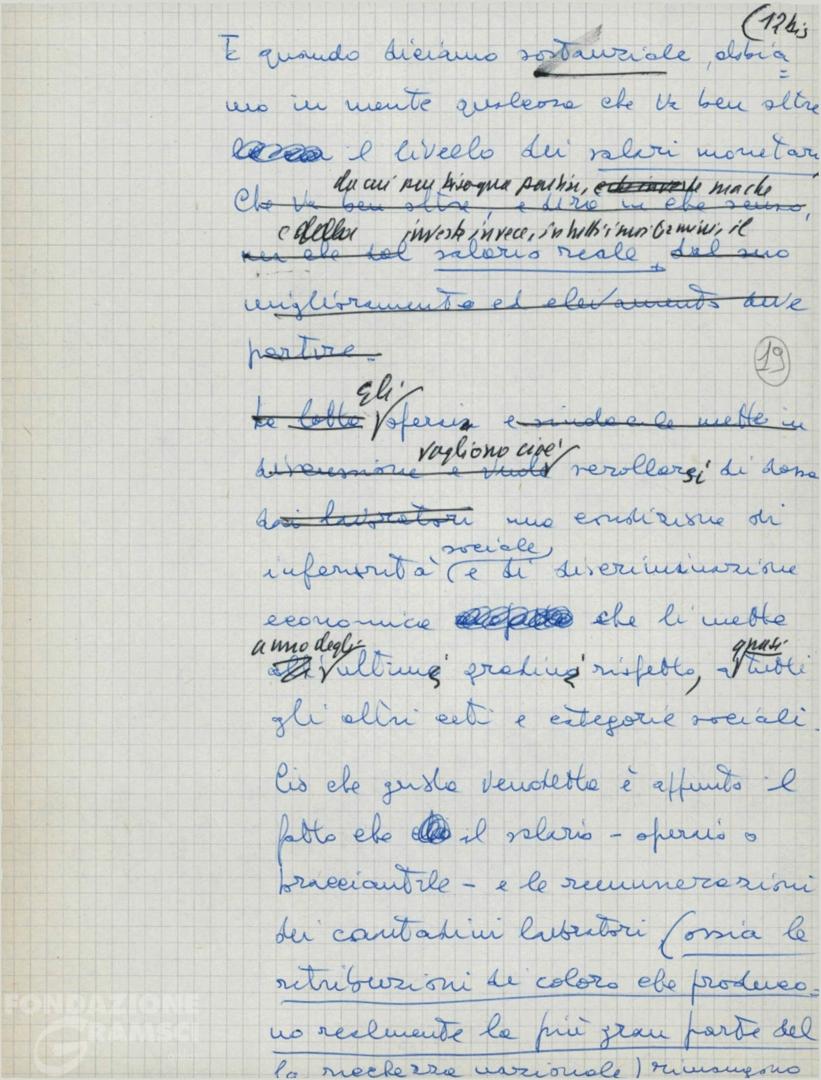 (12 bis
E quando diciamo sostanziale, abbia=
mo in mente qualcosa che va ben oltre
il livello dei salari monetari,
da cui pur bisogna partire, ma che
Che va ben oltre, e dirò in che senso,
investe invece, in tutti i suoi termini, il
salario reale, dal suo
miglioramento ed elevamento deve
partire.
19
Gli
La lotta operai e sindacale mette in
vogliono cioè
discussione e vuole scrollarsi di dosso
dai lavoratori una condizione di
sociale
inferiorità (e di discriminazione
economica che li mette
degli quasi
ultimi gradini rispetto, a tutti
gli altri ceti e categorie sociali.
Ciò che grida vendetta è appunto il
fatto che il salario - operaio o
bracciantile - e le remunerazioni
dei contadini lavoratori (ossia le
retribuzioni di coloro che produco=
no realmente la più gran parte del
la ricchezza nazionale) rimangono
FONDAZIONE
GRAMSCI